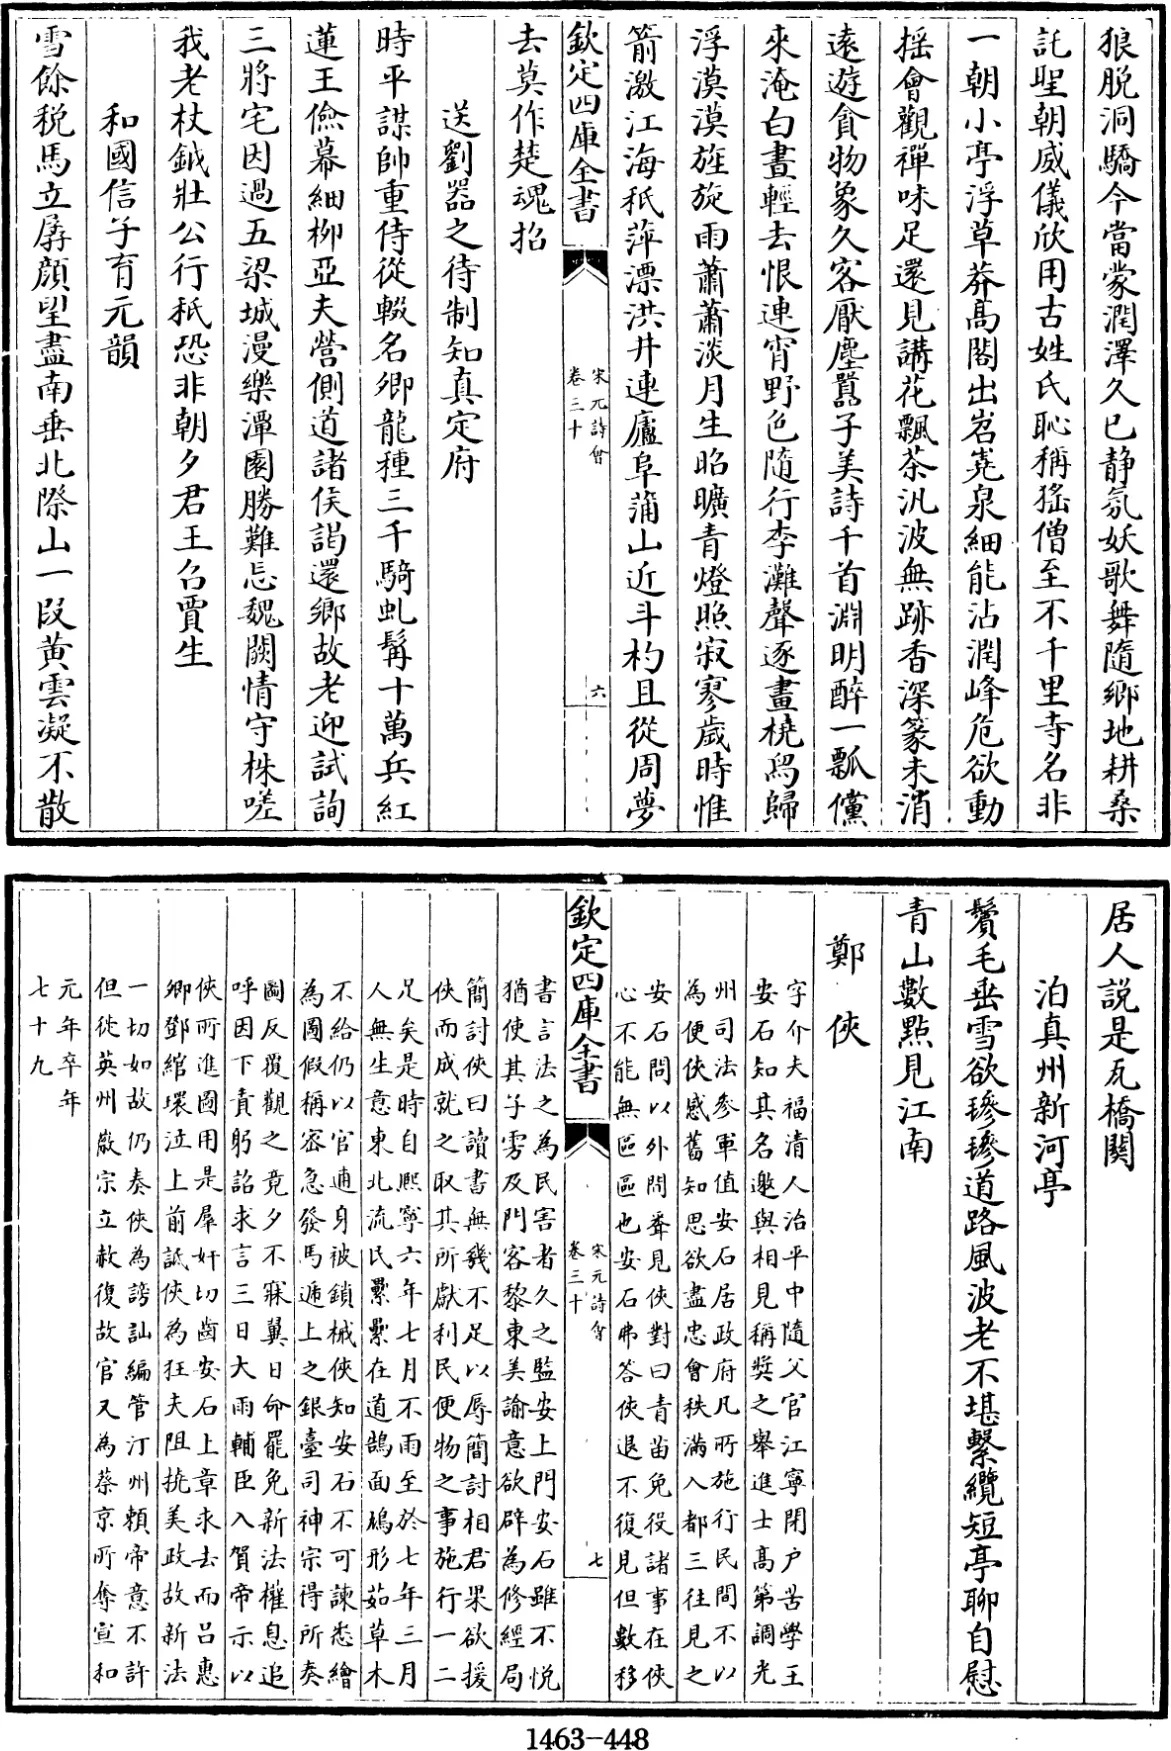 狼脱洞驕今當蒙潤澤久已静氛妖歌舞隨鄉地耕桑
託聖朝威儀欣用古姓氏恥稱猺僧至不千里寺名非
一朝小亭浮草莽髙閣出岧嶤泉細能沾潤峰危欲動
揺會觀禪味足還見講花飄茶汎波無跡香深篆未消
逺遊貪物象久客厭塵囂子美詩千首淵明醉一瓢儻
來淹白晝輕去恨連宵野色隨行李灘聲逐畫橈爲歸
浮漠漠旌旋雨蕭蕭淡月生昭曠青燈照寂寥歲時惟
箭激江海秖萍漂洪井連廬阜蒲山近斗杓且從周夢
欽定四庫全書
宋元詩會
卷三十
六
去莫作楚魂招
送劉器之待制知真定府
時平謀帥重侍從輟名卿龍種三千騎虬髯十萬兵紅
蓮王儉幕細柳亞夫營側道諸侯謁還鄉故老迎試詢
三將宅因過五梁城漫樂潭園勝難忘魏闕情守株嗟
我老杖鉞壯公行秖恐非朝夕君王召賈生
和國信子育元韻
雪餘税馬立孱顔望盡南垂北際山一段黄雲凝不散
居人説是瓦橋関
泊真州新河亭
鬢毛垂雪欲毿毿道路風波老不堪繫纜短亭聊自慰
青山數點見江南
鄭俠
字介夫福清人治平中隨父官江寧閉户苦學王
安石知其名邀與相見稱奬之舉進士髙第調光
州司法參軍值安石居政府凡所施行民間不以
為便俠感舊知思欲盡忠會秩滿入都三往見之
安石問以外間聞見俠對曰青苗免役諸事在俠
心不能無區區也安石弗答俠退不復見但數移
欽定四庫全書
宋元詩會
卷三十
七
書言法之為民害者久之監安上門安石雖不悦
猶使其子雱及門客黎東美諭意欲辟為修經局
簡討俠曰讀書無幾不足以辱簡討相君果欲援
俠而成就之取其所獻利民便物之事施行一二
足矣是時自熙寧六年七月不雨至於七年三月
人無生意東北流民纍纍在道鵠面鳩形茹草木
不給仍以官逋身被鎖械俠知安石不可諫悉繪
為圖假稱宻急發馬遞上之銀臺司神宗得所奏
圖反覆觀之竟夕不寐翼日命罷免新法權息追
呼因下責躬詔求言三日大雨輔臣入賀帝示以
俠所進圖用是羣奸切齒安石上章求去而吕惠
卿鄧綰環泣上前詆俠為狂夫阻撓美政故新法
一切如故仍奏俠為謗訕編管汀州頼帝意不許
但徙英州徽宗立赦復故官又為蔡京所奪宣和
元年卒年
七十九
1463-448